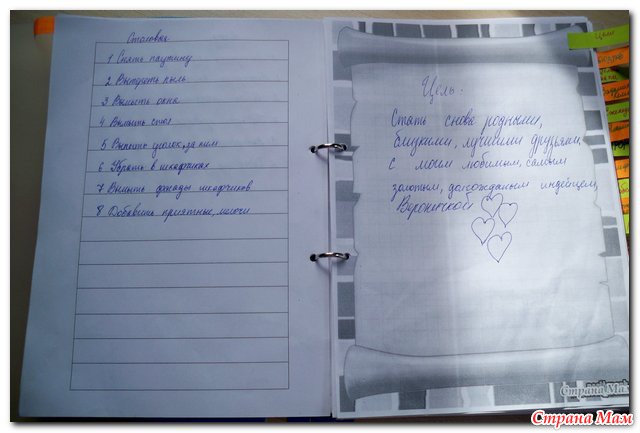 Столовая
1 Снять паутину
2 Вытереть пыль
3 Вымыть окна
4 Вымыть стол
5 Вымыть уголок, за ним
6 Убрать в шкафчиках
7 Вымыть фасады шкафчиков
8 Добавить приятные, мелочи
Цель:
Стать снова родными,
близкими, лучшими друзьями,
с моим любимым, самым
золотым, долгожданым индейцем,
Вероничкой
Цели
Страна Мам
Страна Мам